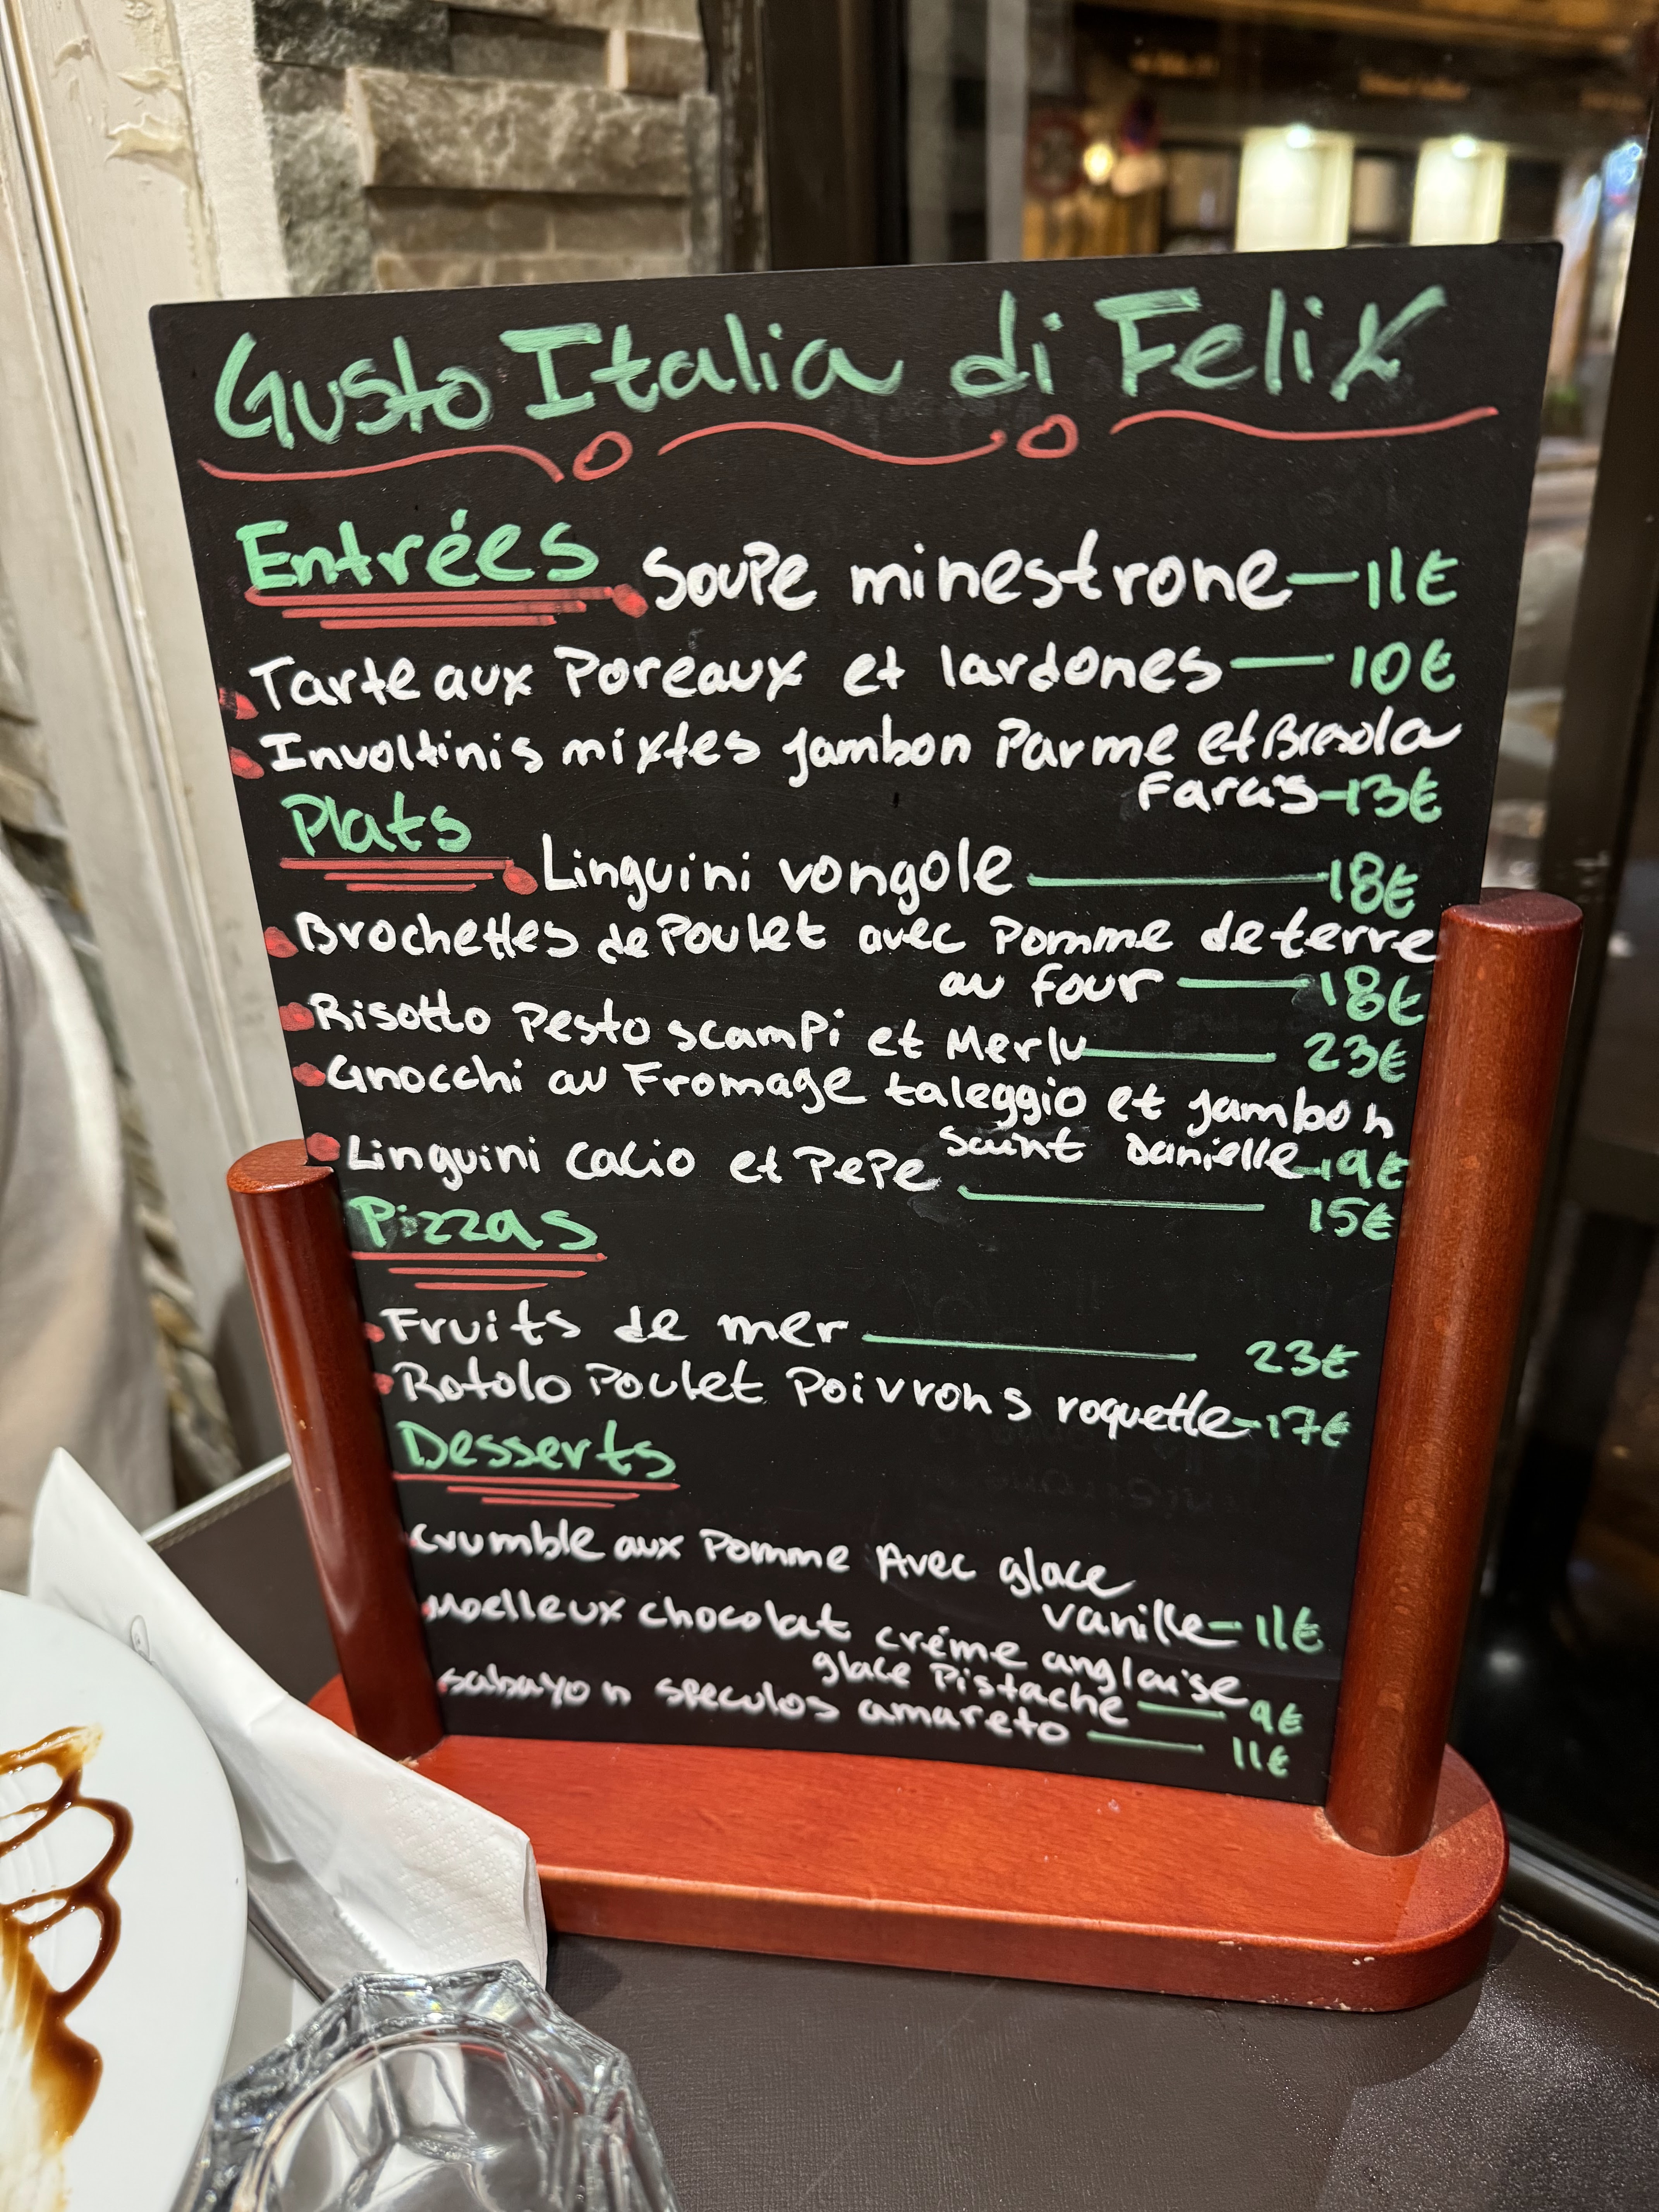 Gusto Italia di Felix
Entrées
Soupe minestrone — 11€
Tarte aux Poreaux et lardones — 10€
Involtinis mixtes jambon Parme et Bresola
Farcis — 13€
Plats
Linguini vongole — 18€
Brochettes de Poulet avec Pomme de terre
au four — 18€
Risotto Pesto scampi et Merlu — 23€
Gnocchi au Fromage taleggio et jambon
Saint Danielle — 19€
Linguini Cacio et PePe — 15€
Pizzas
Fruits de mer — 23€
Rotolo Poulet Poivrons roquette — 17€
Desserts
Crumble aux Pomme Avec glace
vanille — 11€
Moelleux chocolat créme anglaise
glace Pistache — 9€
sabayon speculos amareto — 11€